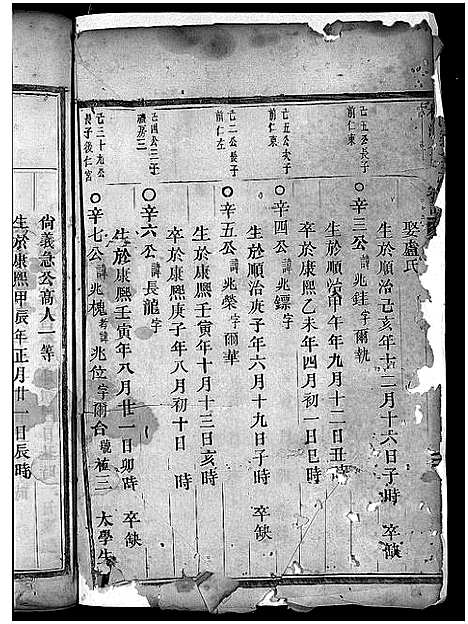 娶盧氏
生於順治己亥年十二月十六日子時 卒缺
己五公長子
前仁東
辛三公諱兆銈字爾執
生於順治甲午年九月十二日丑時
卒於康熙乙未年四月初一日巳時
己五公次子
前仁東
辛四公諱兆鏢字
生於順治庚子年六月十九日子時 卒缺
己二公長子
前仁左
辛五公諱兆榮字爾華
生於康熙壬寅年十月十三日亥時
卒於康熙庚子年八月初十日 時
己四公三子
禮房三
辛六公諱長龍字
生於康熙壬寅年八月廿一日卯時 卒缺
己三十九公
長子後仁宮
辛七公諱兆槐考諱兆位字爾台號植三 太學生
尚義急公高人一等
生於康熙甲辰年正月廿一日辰時